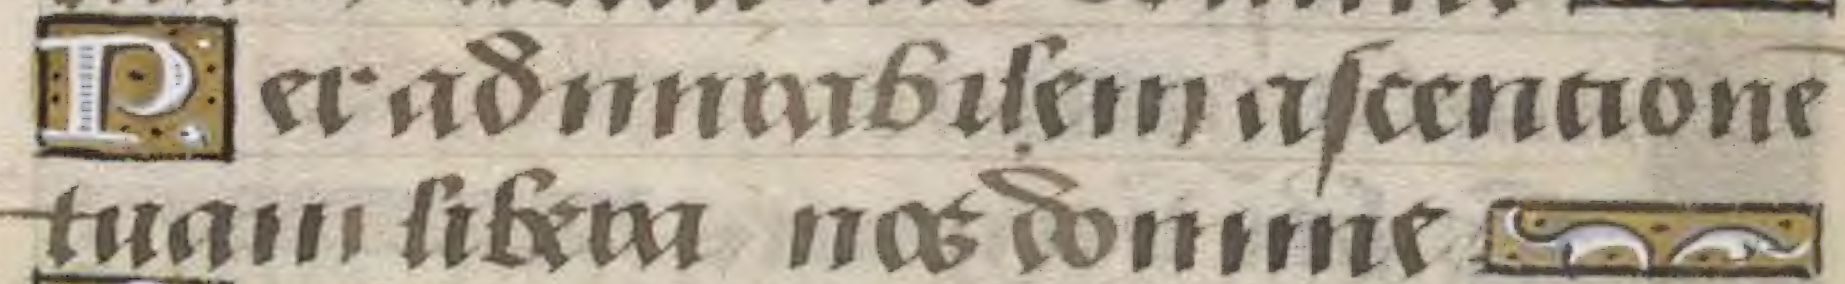 Per admirabilem ascentione
tuam libera nos domine